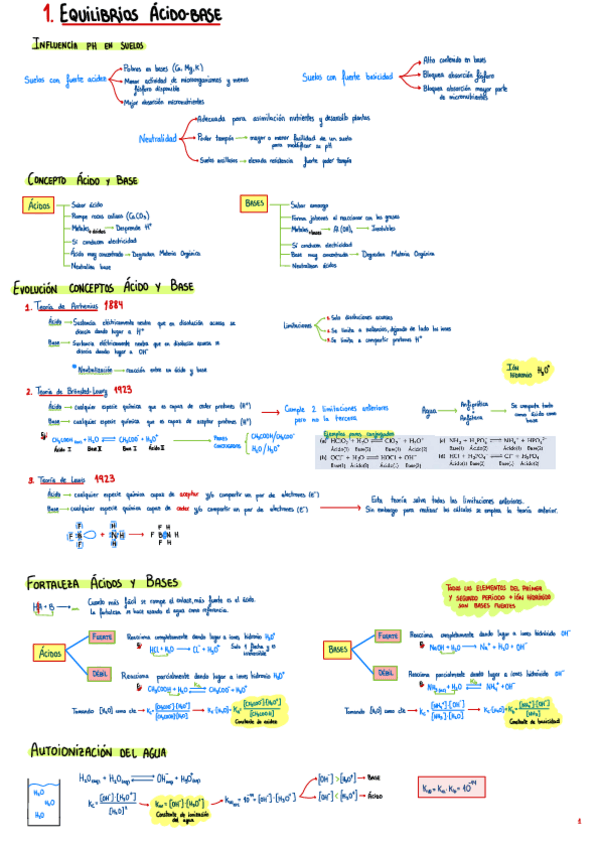 1. EQUILIBRIOS ÁCIDO-BASE
INFLUENCIA PH EN SUELOS
Suelos con fuerte acidez
Pobres en bases (Ca, Mg, K)
Menor actividad de microorganismos y menos
fósforo disponible
Mejor absorción micronutrientes
Suelos con fuerte basicidad
Alto contenido en bases
Bloquea absorción fósforo
Bloquea absorción mayor parte
de micronutrientes
Neutralidad
Adecuada para asimilación nutrientes y desarrollo plantas
Poder tampón → mayor o menor facilidad de un suelo
para modificar su pH
Suelos arcillosos → elevada resistencia fuerte poder tampón
CONCEPTO ÁCIDO Y BASE
ÁCIDOS
Sabor ácido
Rompe rocas calizas (CaCO3)
Metales + ácidos → Desprende H+
Sí conducen electricidad
Ácido muy concentrado → Degradan Materia Orgánica
Neutraliza base
BASES
Sabor amargo
Forma jabones al reaccionar con las grasas
Metales + bases → Al(OH)3 → Insolubles
Sí conducen electricidad
Base muy concentrada → Degradan Materia Orgánica
Neutralizan ácidos
EVOLUCIÓN CONCEPTOS ÁCIDO Y BASE
1. Teoría de Arrhenius 1884
Ácido → Sustancia eléctricamente neutra que en disolución acuosa se
disocia dando lugar a H+
Base → Sustancia eléctricamente neutra que en disolución acuosa se
disocia dando lugar a OH-
* Neutralización → reacción entre un ácido y base
Limitaciones
1. Solo disoluciones acuosas
2. Se limita a sustancias, dejando de lado los iones
3. Se limita a compartir protones H+
IÓN
HIDRONIO H3O+
2. Teoría de Brönsted-Lowry 1923
Ácido → cualquier especie química que es capaz de ceder protones (H+)
Base → cualquier especie química que es capaz de aceptar protones (H+)
→ Cumple 2 limitaciones anteriores
pero no la tercera
Agua → Anfiprótica
Anfótera → Se comporta tanto
como ácido como
base
CH3COOH + H2O ⇌ CH3COO- + H3O+
Ácido I Base II Base I Ácido II
PARES
CONJUGADOS
CH3COOH/CH3COO-
H2O/H3O+
Ejemplos pares conjugados
(a) HClO2 + H2O ⇌ ClO2- + H3O+
Ácido(1) Base(2) Base(1) Ácido(2)
(b) OCl- + H2O ⇌ HOCl + OH-
Base(1) Ácido(2) Ácido(1) Base(2)
(c) NH3 + H2PO4- ⇌ NH4+ + HPO4 2-
Base(1) Ácido(2) Ácido(1) Base(2)
(d) HCl + H2PO4- ⇌ Cl- + H3PO4
Ácido(1) Base(2) Base(1) Ácido(2)
3. Teoría de Lewis 1923
Ácido → cualquier especie química capaz de aceptar y/o compartir un par de electrones (e-)
Base → cualquier especie química capaz de ceder y/o compartir un par de electrones (e-)
→ Esta teoría salva todas las limitaciones anteriores.
Sin embargo para realizar los cálculos se emplea la teoría anterior.
F H F H
F B + N H → F B N H
F H F H
FORTALEZA ÁCIDOS Y BASES
Cuanto más fácil se rompe el enlace, más fuerte es el ácido.
La fortaleza se hace usando el agua como referencia.
TODOS LOS ELEMENTOS DEL PRIMER
Y SEGUNDO PERIODO + IÓN HIDRÓXIDO
SON BASES FUERTES
ÁCIDOS
FUERTE
Reacciona completamente dando lugar a iones hidronio H3O+
HCl + H2O → Cl- + H3O+
Solo 1 flecha y es
irreversible
DÉBIL
Reacciona parcialmente dando lugar a iones hidronio H3O+
CH3COOH + H2O ⇌ CH3COO- + H3O+
Tomando [H2O] como cte → Kc = [CH3COO-]·[H3O+] / [CH3COOH][H2O] → Kc·[H2O] = Ka = [CH3COO-]·[H3O+] / [CH3COOH]
Constante de acidez
BASES
FUERTE
Reacciona completamente dando lugar a iones hidróxido OH-
NaOH + H2O → Na+ + H2O + OH-
DÉBIL
Reacciona parcialmente dando lugar a iones hidróxido OH-
NH3 + H2O ⇌ NH4+ + OH-
Tomando [H2O] como cte → Kc = [NH4+]·[OH-] / [NH3]·[H2O] → Kc·[H2O] = Kb = [NH4+]·[OH-] / [NH3]
Constante de basicidad
AUTOIONIZACIÓN DEL AGUA
H2O
H2O
H2O
H2O + H2O ⇌ OH- + H3O+
Kc = [OH-]·[H3O+] / [H2O]² → Kw = [OH-]·[H3O+] → Kw = 10^-14 = [OH-]·[H3O+]
Constante de ionización
del agua
[OH-] > [H3O+] → BASE
[OH-] < [H3O+] → ÁCIDO
Kw = Ka · Kb = 10^-14
1